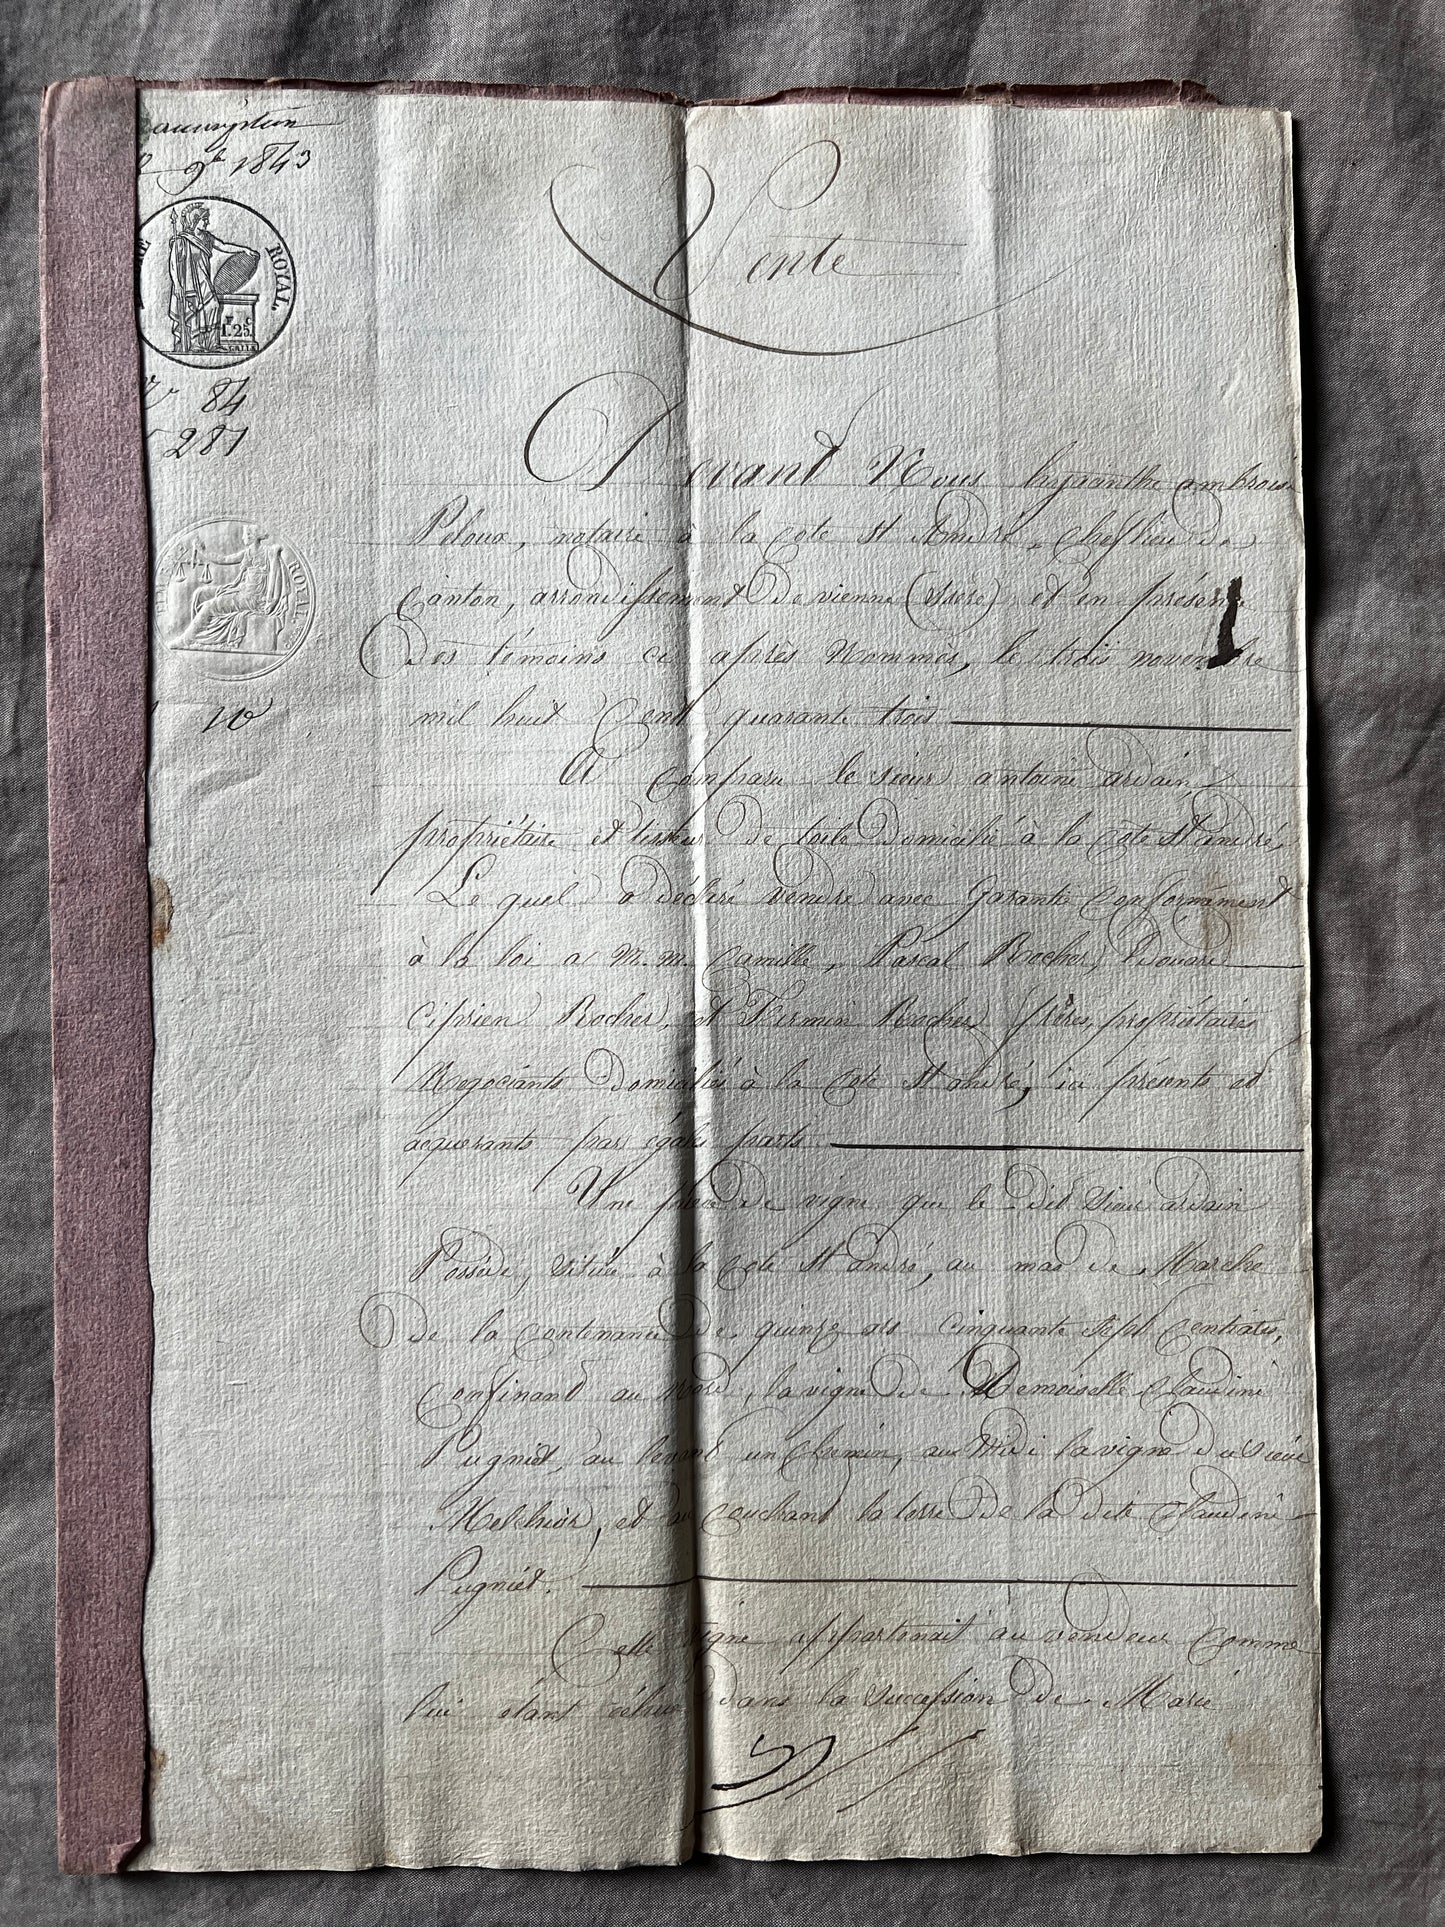 9b 1843
ROYAL.
F C
1.25.
84
287
ROYAL
10
Vente
Devant Nous hyacinthe ambroise
Peloux, notaire à la Cote St André, Cheflieu de
Canton, arrondissement de vienne (Isère) et en présence
Des témoins ci après Nommés, le trois novembre
mil huit Cent quarante trois
A Comparu le sieur antoine ardain
propriétaire et tisseur de toile Domicilié à la Cote St andré,
Le quel a déclaré vendre avec Garantie Conformément
à la loi a M.M. Camille, Pascal Rocher, Edouard
Ciprien Rocher, et Firmin Rocher frères, propriétaires
Négociants Domiciliés à la Cote St andré, ici présents et
acquerants par égales parts
Une pièce de vigne que le dit Sieur ardain
Possède, située à la Cote St andré, au mas de Marche
De la Contenance de quinze ars Cinquante Sept Centiares,
Confinant au Nord, la vigne de Demoiselle Claudine
Pugniet, au levant un Chemin, au Midi la vigne du Sieur
Melchior, et au Couchant la terre de la dite Claudine
Pugniet.
Cette vigne appartenait au vendeur Comme
lui étant échue dans la Succession de Marie